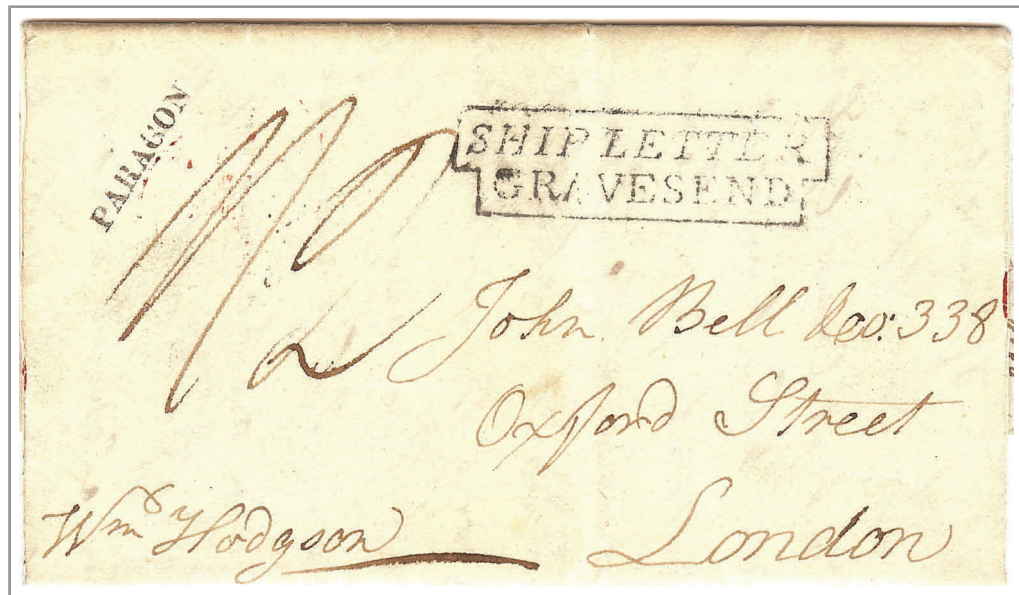 PARAGON
SHIP LETTER
GRAVESEND
1/2
John Bell No: 338
Oxford Street
London
Wm Hodgson